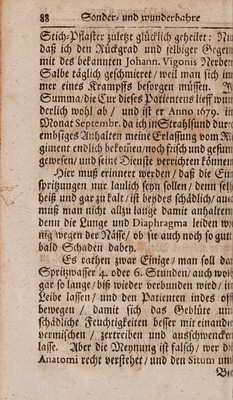 88 Sonder- und wunderbahre
Stich-Pflaster zuletzt glücklich geheilet: Nu
daß ich den Rückgrad und selbiger Gegen
mit des bekannten Johann. Vigonis Nerven
Salbe täglich geschmieret / weil man sich im
mer eines Krampffs besorgen müssen. In
Summa / die Cur dieses Patienten lieff wun
derlich wohl ab / und ist er Anno 1679. im
Monat Septembr. da ich in Strahlsund dur
embsiges Anhalten meine Erlassung vom Re
giment endlich bekommen / noch frisch und gesun
gewesen / und seine Dienste verrichten können
Hier muß erinnert werden / daß die Ein
spritzungen nur laulich seyn sollen / denn sel
heiß und gar zu kalt / ist beydes schädlich / auch
muß man nicht allzu lange damit anhalten
denn die Lunge und Diaphragma leiden we
nig wegen der Nässe / ob sie auch noch so gut
bald Schaden dabey.
Es rathen zwar Einige / man soll das
Spritzwasser 4. oder 6. Stunden / auch wohl
gar so lange / biß wieder verbunden wird / im
Leibe lassen / und den Patienten indes offt
bewegen / damit sich das Geblüte und
schädliche Feuchtigkeiten besser mit einander
vermischen / zertreiben und ausschwencken
lasse. Aber die Meynung ist falsch / wer die
Anatomi recht verstehet / und den Situm und